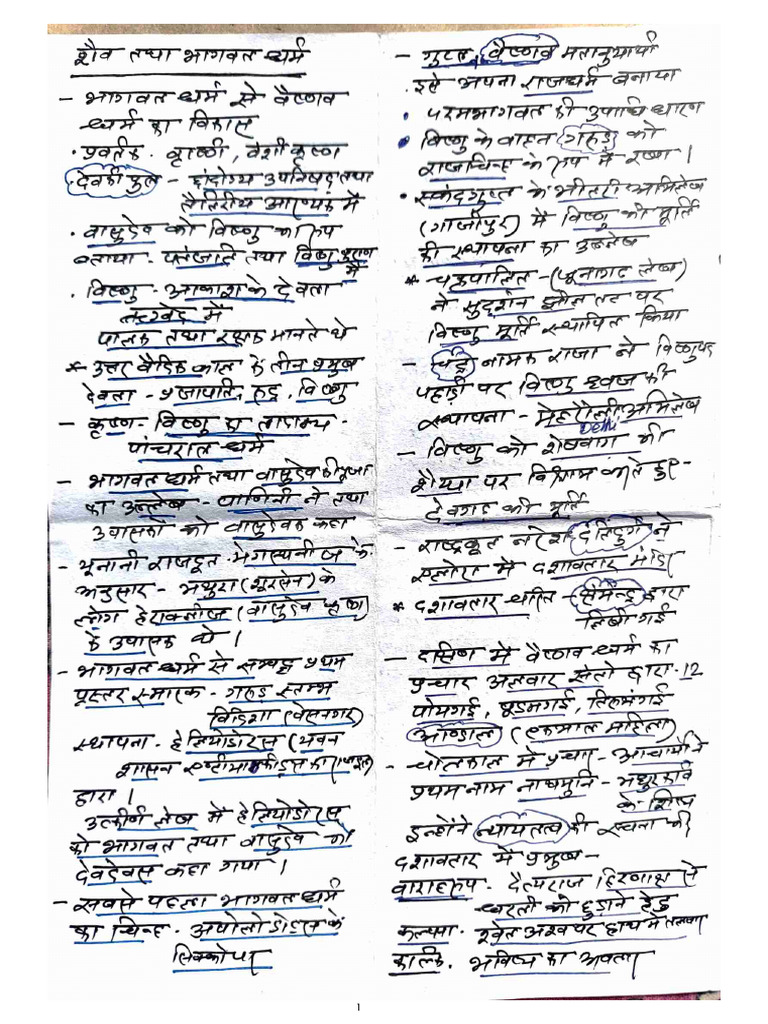 शैव तथा भागवत धर्म
- भागवत धर्म से वैष्णव
धर्म का विकास
• प्रवर्तक. वृष्णी, वंशी कृष्ण
देवकी पुत्र - छांदोग्य उपनिषद तथा
तैतिरीय आरण्यक में
• वासुदेव को विष्णु का रूप
बताया - पतंजलि तथा विष्णु पुराण
में
• विष्णु - आकाश के देवता
ऋग्वेद में
पालक तथा रक्षक मानते थे
* उत्तर वैदिक काल के तीन प्रमुख
देवता - प्रजापति, रुद्र, विष्णु
- कृष्ण - विष्णु का तादात्म्य -
पांचरात्र धर्म
- भागवत धर्म तथा वासुदेव की पूजा
का उल्लेख - पाणिनी ने तथा
उपासकों को वासुदेवक कहा
- यूनानी राजदूत मेगस्थनीज के
अनुसार - मथुरा (शूरसेन) के
लोग हेराक्लीज (वासुदेव कृष्ण)
के उपासक थे।
- भागवत धर्म से सम्बद्ध प्रथम
प्रस्तर स्मारक - गरुड़ स्तम्भ
विदिशा (बेसनगर)
स्थापना - हेलियोडोरस (यवन
शासक एण्टीयालकीड्स का राजदूत)
द्वारा।
उत्कीर्ण लेख में हेलियोडोरस
को भागवत तथा वासुदेव को
देवदेवस कहा गया।
- सबसे पहला भागवत धर्म
का चिन्ह - अपोलोडोटस के
सिक्को पर
- गुप्त वैष्णव मतानुयायी
इसे अपना राजधर्म बनाया
• परमभागवत की उपाधि धारण
• विष्णु के वाहन गरुड़ को
राजचिन्ह के रूप में रखा।
• स्कंदगुप्त के भीतरी अभिलेख
(गाजीपुर) में विष्णु की मूर्ति
की स्थापना का उल्लेख
* चक्रपालित - (जूनागढ़ लेख)
ने सुदर्शन झील तट पर
विष्णु मूर्ति स्थापित किया
- चंद्र नामक राजा ने विष्णुपद
पहाड़ी पर विष्णु ध्वज की
स्थापना - मेहरौली अभिलेख
Delhi
- विष्णु को शेषनाग की
शैय्या पर विश्राम करते हुए -
देवगढ़ की मूर्ति
- राष्ट्रकूट नरेश दंतिदुर्ग ने
एलोरा में दशावतार मंदिर
* दशावतार चरित - क्षेमेन्द्र द्वारा
लिखी गई
- दक्षिण में वैष्णव धर्म का
प्रचार अलवार संतो द्वारा - 12
पोयगई, पूडमगई, तिरुमंगई
आण्डाल (एकमात्र महिला)
- चोलकाल में प्रचार - आचार्यो ने
प्रथम नाम नाथमुनि - मधुरकवि
के शिष्य
इन्होंने न्यायतत्व की रचना की
दशावतार में प्रमुख -
वाराहरूप - दैत्यराज हिरण्याक्ष से
धरती को छुड़ाने हेतु
श्वेत अश्व पर हाथ में तलवार
कल्कि. भविष्य का अवतार
1